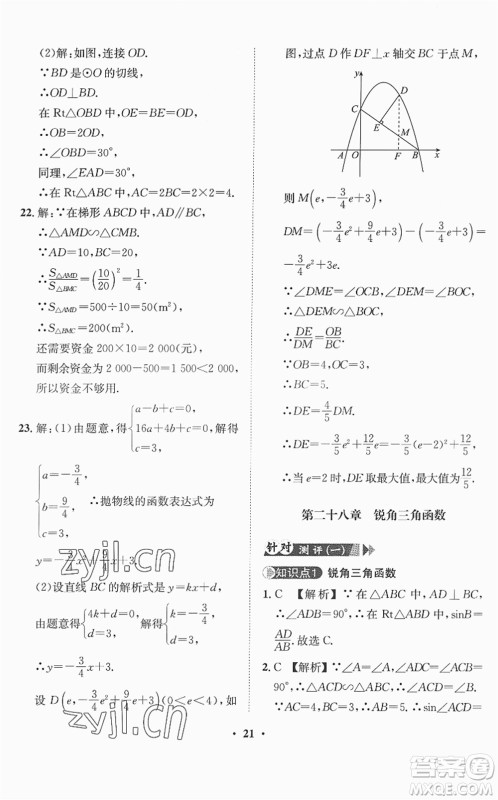 (2)解:如图,连接OD.
∵BD是⊙O的切线,
∴OD⊥BD.
∵在Rt△OBD中,OE=BE=OD.
∴OB=2OD.
∴∠OBD=30°,
同理,∠EAD=30°,
∴在Rt△ABC中,AC=2BC=2×2=4.
22. 解:∵在梯形ABCD中,AD∥BC,
∴△AMD∽△CMB,
∵AD=10,BC=20,
∴S△AMD/S△BMC=(10/20)²=1/4.
∵S△AMD=500÷10=50(m²),
∴S△BMC=200(m²).
还需要资金200×10=2 000(元),
而剩余资金为2 000-500=1 500<2 000,
所以资金不够用.
23. 解:(1)由题意,得{a-b+c=0, 16a+4b+c=0, c=3, 解得
{a=-3/4, b=9/4, c=3, ∴抛物线的函数表达式为
y=-3/4x²+9/4x+3.
(2)设直线BC的解析式为y=kx+b.
由题意得{4k+b=0, b=3, 解得{k=-3/4, b=3,
∴y=-3/4x+3.
设D(e,-3/4e²+9/4e+3)(0<e<4),如
图,过点D作DF⊥x轴交BC于点M,
y
D
C
E
M
A
O
F
B
x
则M(e,-3/4e+3)
DM=(-3/4e²+9/4e+3)-(-3/4e+3)
=-3/4e²+3e.
∵∠DME=∠OCB,∠DEM=∠BOC,
∴△DEM∽△BOC,
∴DE/DM=OB/BC.
∵OB=4,OC=3,
∴BC=5.
∴DE=4/5DM.
∴DE=-3/5e²+12/5e=-3/5(e-2)²+12/5.
∴当e=2时,DE取最大值,最大值是12/5.
第二十八章 锐角三角函数
针对测评(一)
知识点1 锐角三角函数
1. C 【解析】∵在△ABC中,AD⊥BC,
∴∠ADB=90°,∴在Rt△ABD中,sinB=
AD/AB.故选C.
2. C 【解析】∵∠A=∠A,∠ADE=∠C=
90°,∴△ADE∽△ACB.∴∠AED=∠B.
∵BC=3,AC=4,∴AB=5.∴sin∠AED=
21
zyjl.cn
zyjl.cn